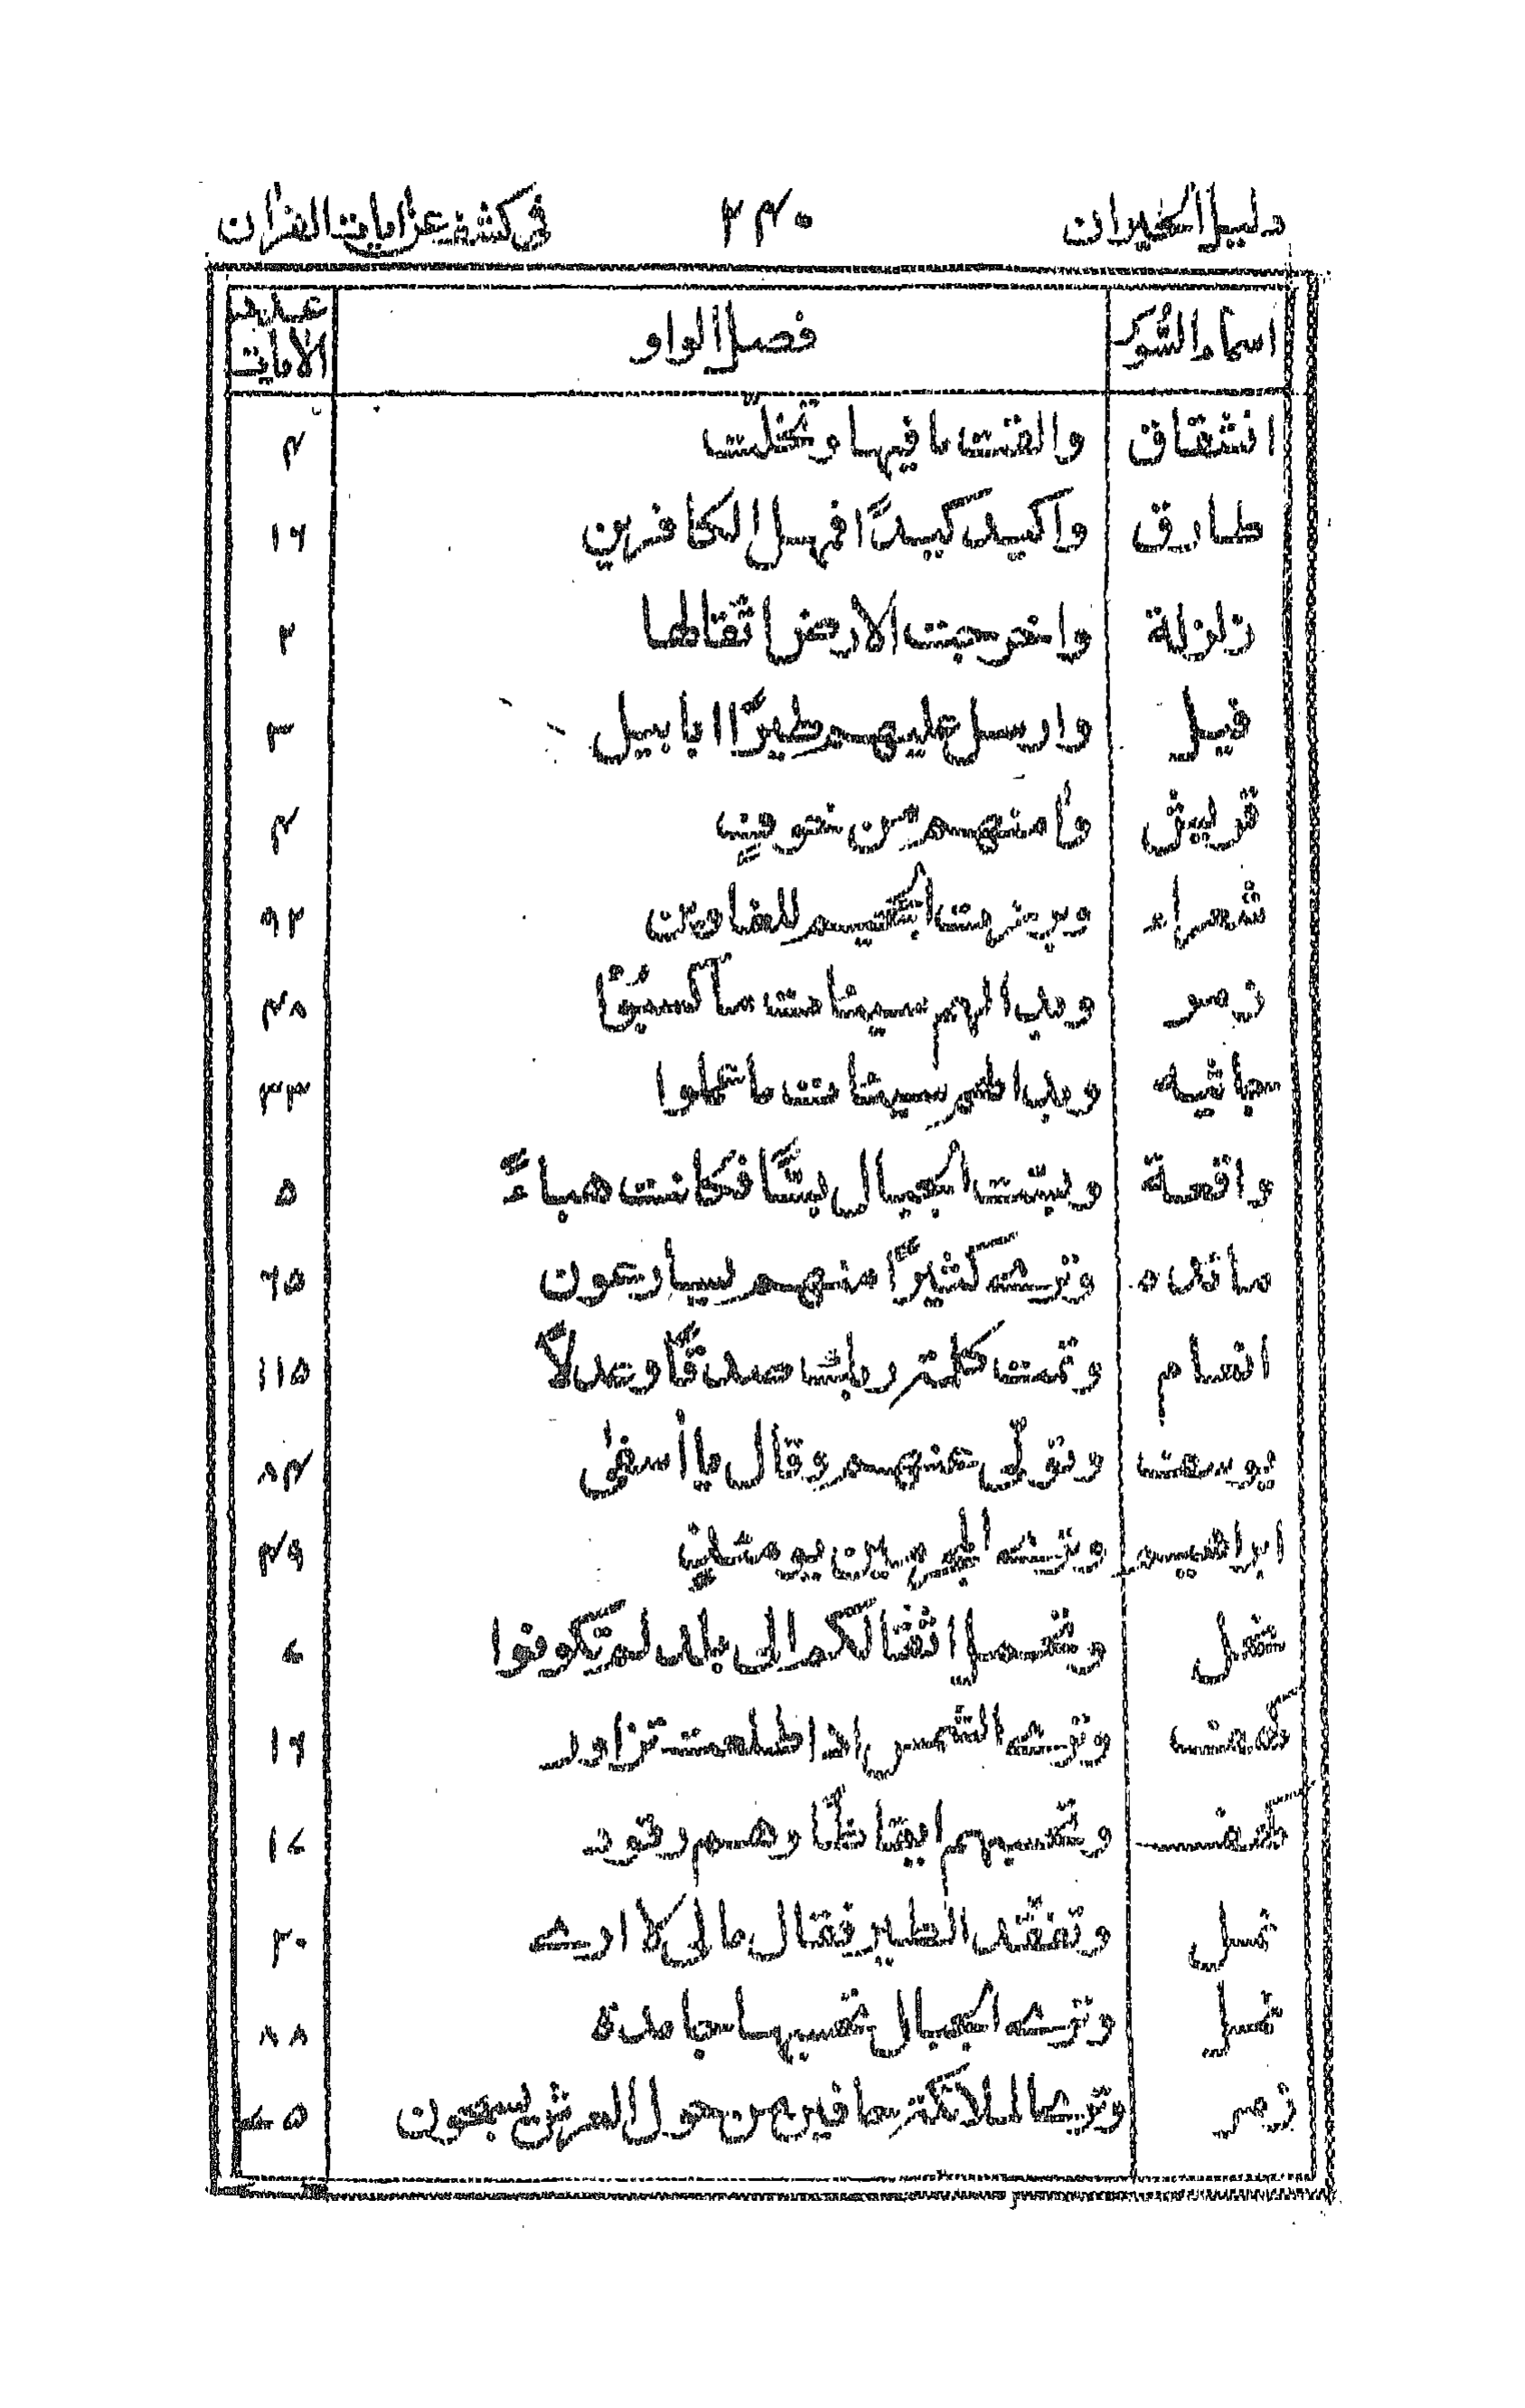 دليل الحيران ٢٤٠ في كشف عن ايات القران
اسماء السُّور فصل الواو عدد الآيات
انشقاق والقت ما فيها وتخلّت ٤
طارق واكيد كيدًا فمهل الكافرين ١٦
زلزلة واخرجت الارض اثقالها ٢
فيل وارسل عليهم طيرًا ابابيل ٣
قريش وأمنهم من خوفٍ ٤
شعراء وبرزت الجحيم للغاوين ٩٢
زمر وبدا لهم سيئات ما كسبُوا ٤٨
جاثيه وبدا لهم سيئات ما عملوا ٣٣
واقعة وبسّت الجبال بسًّا فكانت هباءً ٥
مائده وترے كثيرًا منهم يسارعون ٦٥
انعام وتمت كلمة ربك صدقًا وعدلاً ١١٥
يوسف وتولّى عنهم وقال يا أسفىٰ ٨٤
ابراهيم وترے المجرمين يومئذٍ ٤٩
نحل وتحمل اثقالكم الى بلد لم تكونوا ٧
كهف وترے الشمس اذا طلعت تزاور ١٦
كهف وتحسبهم ايقاظًا وهم رقود ١٧
نمل وتفقّد الطير فقال مالى لا ارے ٢٠
نمل وترے الجبال تحسبها جامدة ٨٨
زمر وترے الملائكة حافين من حول العرش يسبحون ٧٥